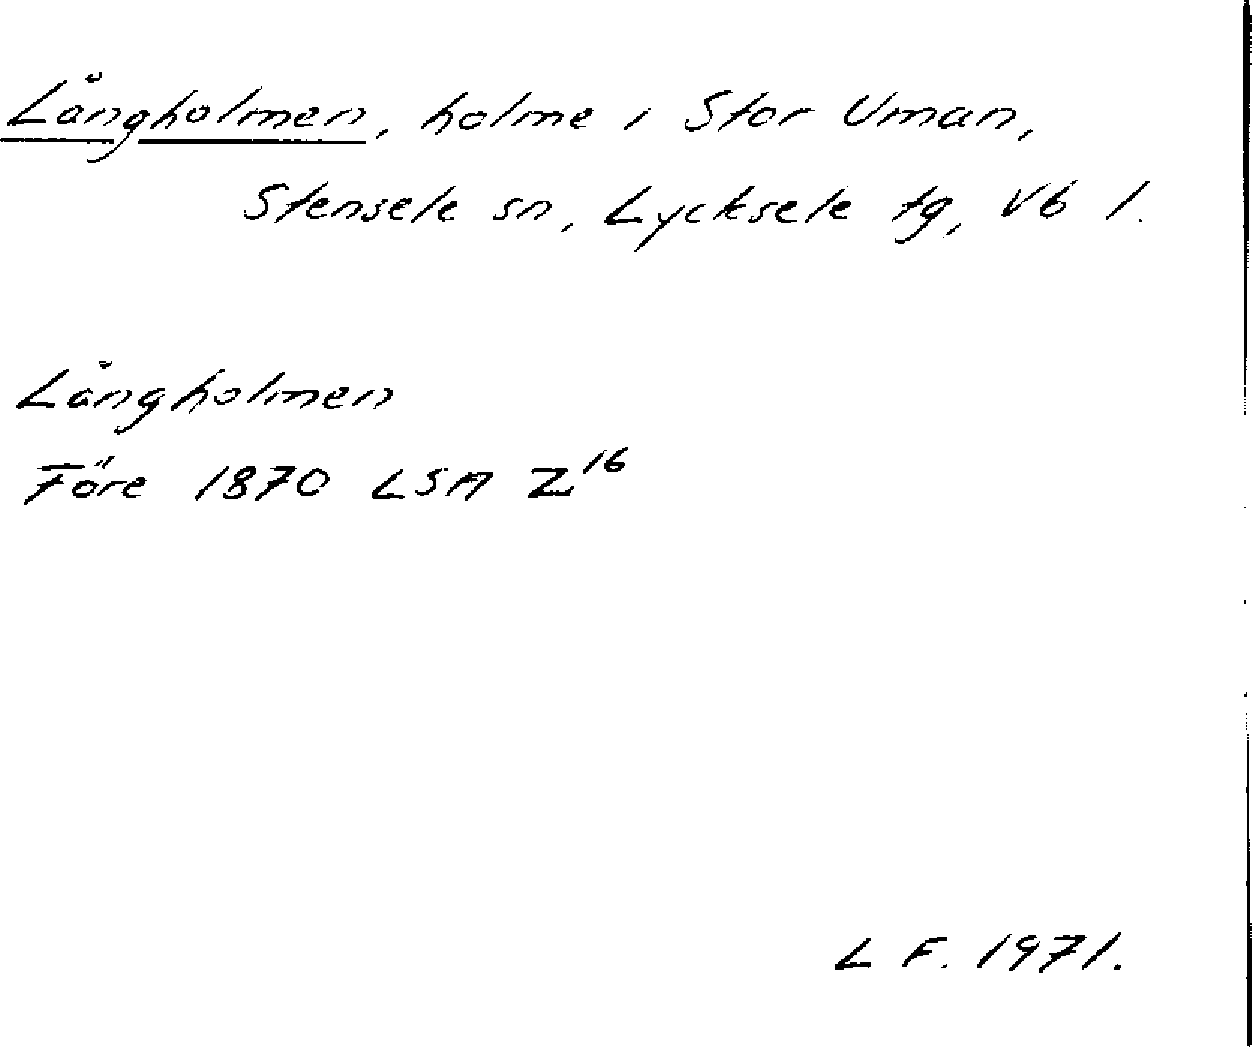 Långholmen, holme i Stor Uman,
Stensele sn, Lycksele tg, Vb l.
Långholmen
Före 1870 LSA Z16
L F. 1971.